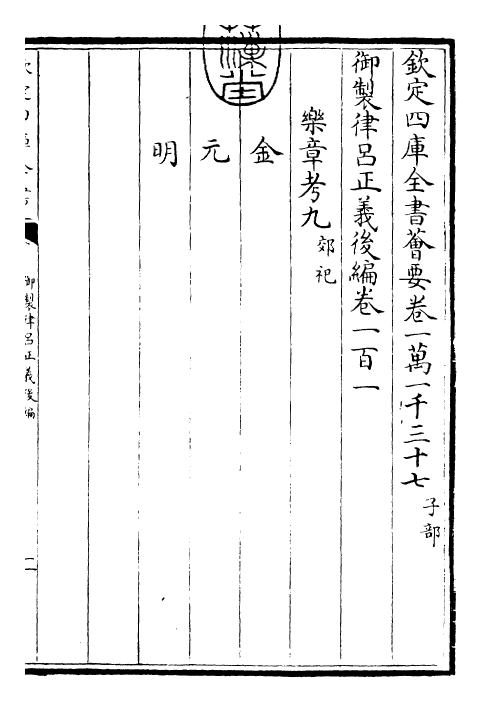 欽定四庫全書薈要卷一萬一千三十七 子部
御製律呂正義後編卷一百一
樂章考九 郊祀
金
元
明
御製律呂正義後編